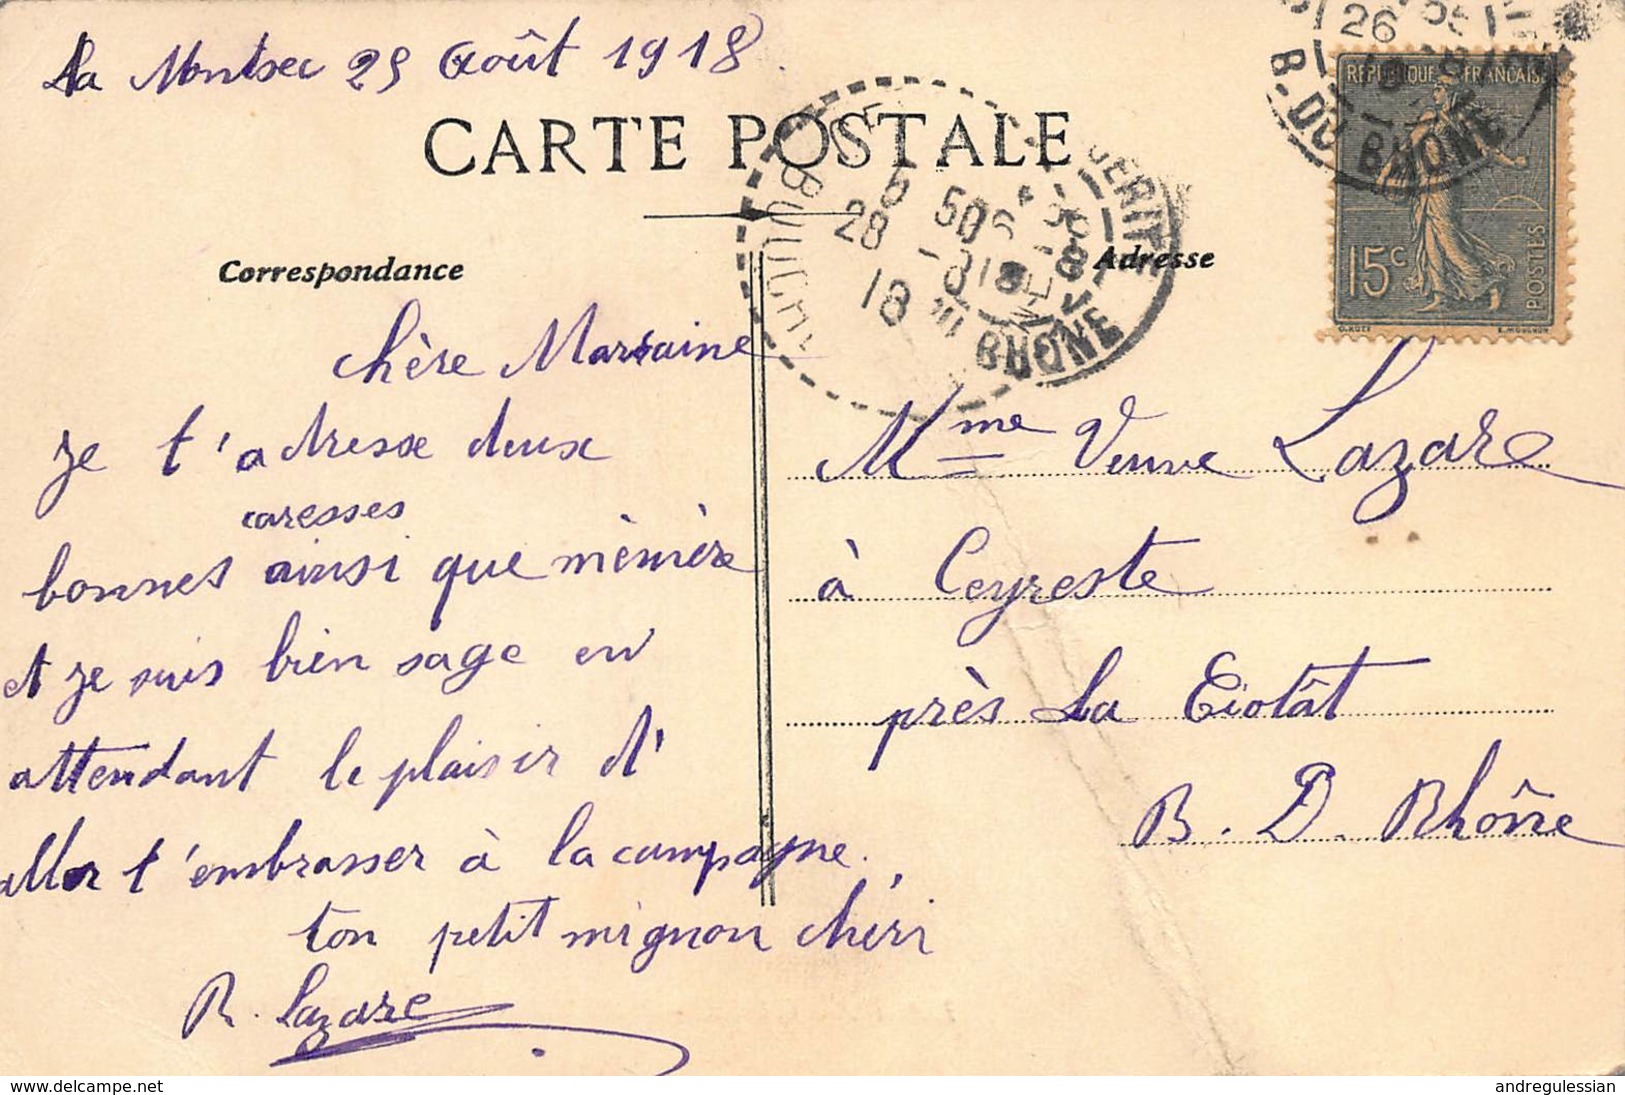 La Montsec 25 Août 1918.
CARTE POSTALE
Correspondance
Adresse
REPUBLIQUE FRANCAISE
15c
POSTES
O. ROTY
E. MOUCHON
26
B. DU RHONE
28
18
RHONE
chère Marraine
je t'adresse deux
caresses
bonnes ainsi que mémère
et je suis bien sage en
attendant le plaisir d'
aller t'embrasser à la campagne.
ton petit mignon chéri
R. Lazare
Mme Veuve Lazare
à Ceyreste
près La Ciotât
B. D. Rhône
www.delcampe.net
andregulessian